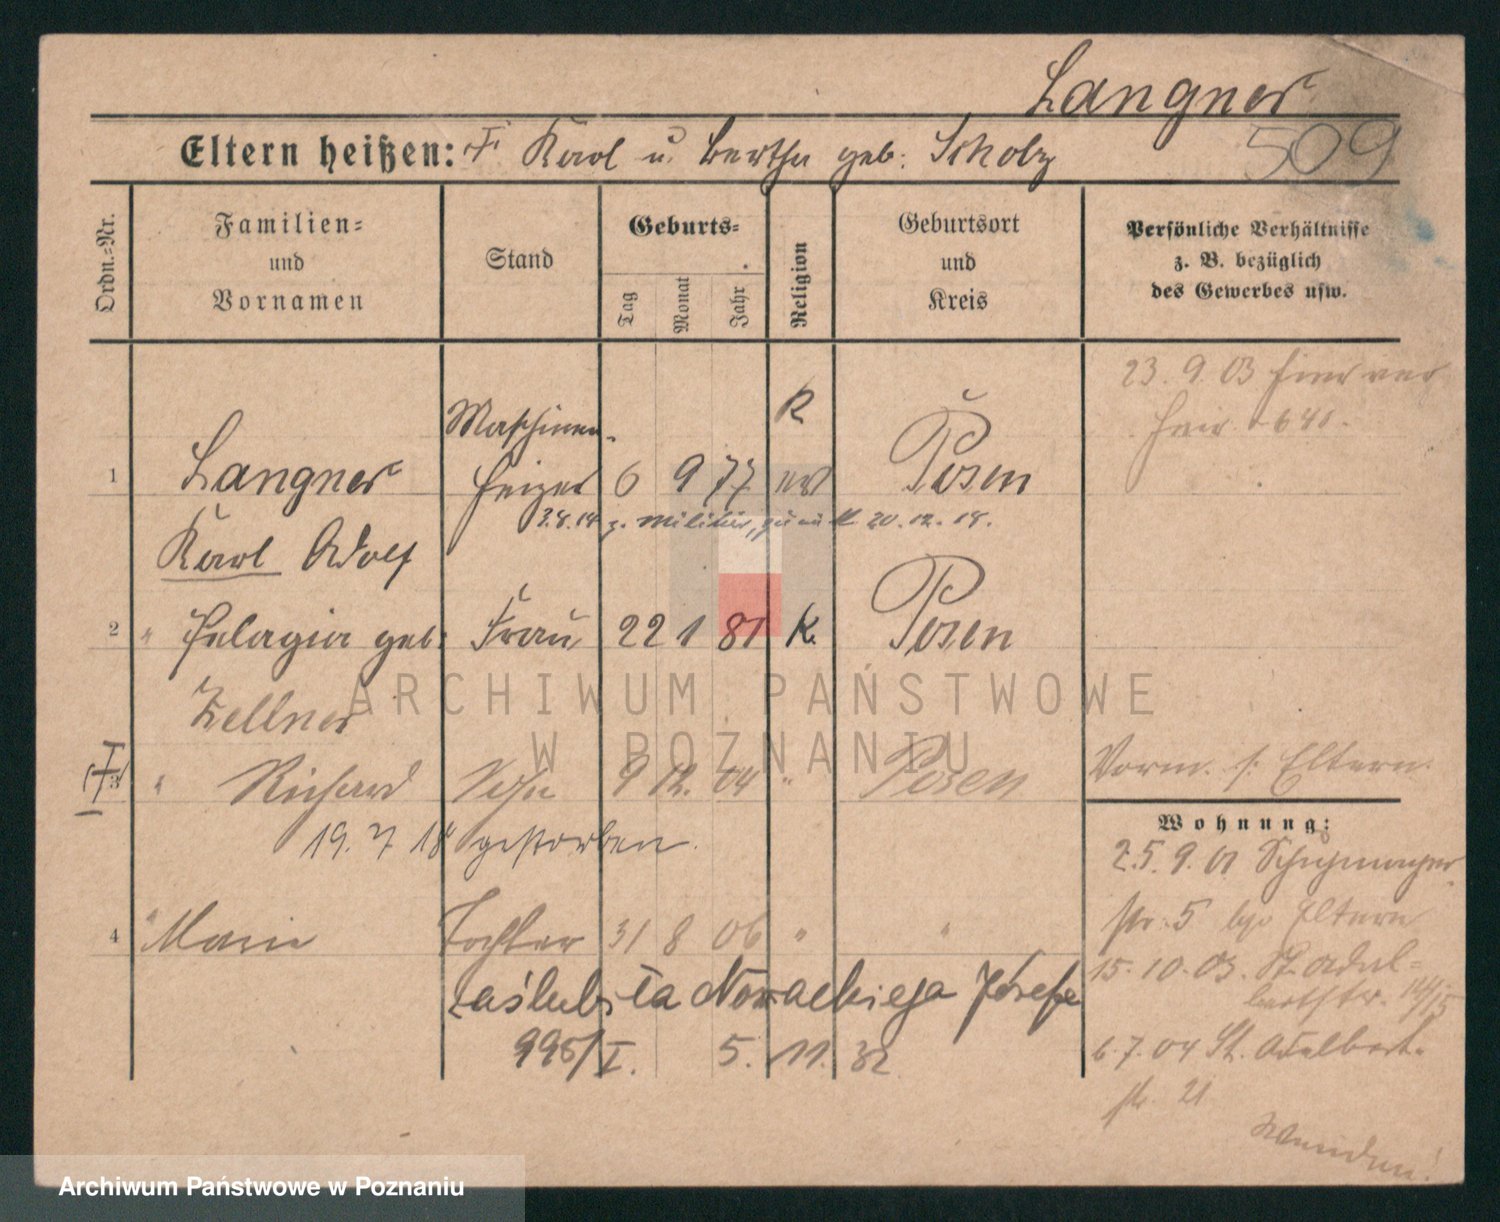 Langner
509
Eltern heißen: Karl u. Bertha geb. Scholz
Ordn.=Nr.
Familien=
und
Vornamen
Stand
Geburts=
Tag
Monat
Jahr
Religion
Geburtsort
und
Kreis
Persönliche Verhältnisse
z. B. bezüglich
des Gewerbes usw.
23. 9. 03
Maschinen-
K
1 Langner heizer 6 9 77 Posen
3.8.14 z. Militär, zurück 20.12.18.
Karl Adolf
2 " Pelagia geb. Frau 22 1 81 K. Posen
Zellner
3 " Richard Sohn 9 12. 04 " Posen
Vorm. s. Eltern.
19. 7 18 gestorben.
Wohnung:
25. 9. 01 Schuhmacher
str. 5 Eltern
4 " Marie Tochter 31 8 06 " "
15. 10. 03. St. Adal=
bertstr. 14/15
zaślubiła Nowackiego Józefa
995/I. 5. 11. 32
6. 7. 04 St. Adalbert-
str. 21
Wenden!
ARCHIWUM PAŃSTWOWE
W POZNANIU
Archiwum Państwowe w Poznaniu